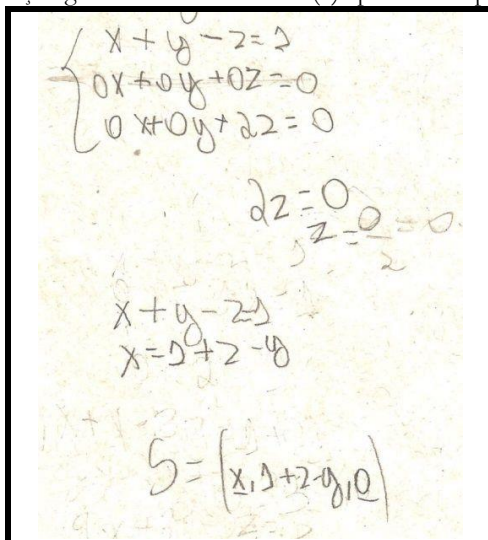 x + y - z = 1
0x + 0y + 0z = 0
0x + 0y + 2z = 0
2z = 0
z = 0/2 = 0
x + y - z = 1
x = 1 + z - y
S = (x, 1 + z - y, 0)